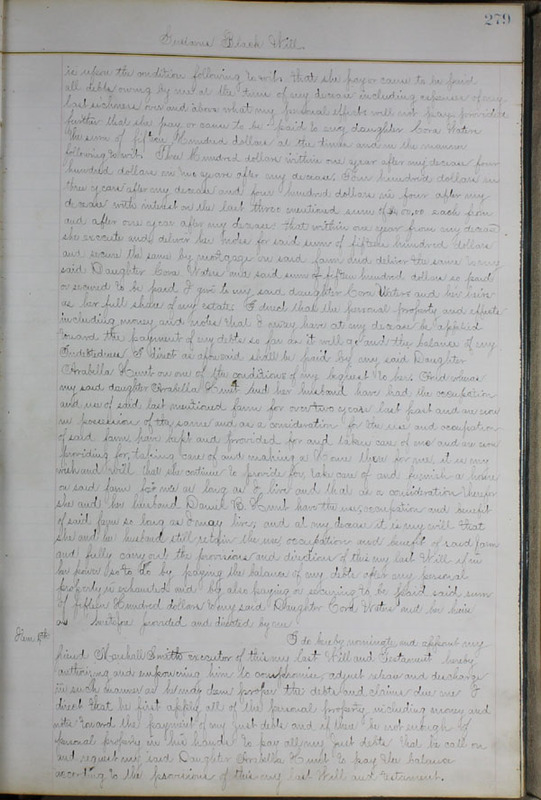 279
Black Will.
is upon the condition following to wit: that she pay or cause to be paid
all debts owing by me at the time of my decease including expenses of my
last sickness over and above what my personal effects will not pay. provided
further that she pay or cause to be paid to my daughter Cora Waters
the sum of fifteen Hundred dollars at the times and in the manner
following to wit: Three Hundred dollars within one year after my decease four
hundred dollars in two years after my decease. Four hundred dollars in
three years after my decease and four hundred dollars in four after my
decease with interest on the last three mentioned sums of $400.00 each from
and after one year after my decease that within one year from my decease
she execute and deliver her notes for said sum of fifteen hundred dollars
and secure the same by mortgage on said farm and deliver the same to my
said Daughter Cora Waters and said sum of fifteen hundred dollars so paid
or secured to be paid I give to my said daughter Cora Waters and her heirs
as her full share of my estate. I direct that the personal property and effects
including money and notes that I may have at my decease be applied
toward the payment of my debts so far as it will go and the balance of my
Indebtedness I direct as aforesaid shall be paid by my said Daughter
Arabella Hunt on one of the conditions of my bequest to her. And whereas
my said daughter Arabella Hunt and her husband have had the occupation
and use of said last mentioned farm for over two years last past and are now
in possession of the same and as a consideration for the use and occupation
of said farm have kept and provided for and taken care of me and are now
providing for, taking care of and making a Home there for me, it is my
wish and will that she continue to provide for, take care of and furnish a home
on said farm for me as long as I live and that as a consideration therefor
she and her husband Daniel B. Hunt have the use, occupation and benefit
of said farm so long as I may live; and at my decease it is my will that
she and her husband still retain the use, occupation and benefit of said farm
and fully carry out the provisions and directions of this my last Will if in
her power so to do by paying the balance of my debts after my personal
property is exhausted and by also paying or securing to be paid said sum
of fifteen Hundred dollars to my said Daughter Cora Waters and her heirs
as before provided and directed by me
Item
I do hereby nominate and appoint my
friend Marshall Smith executor of this my last Will and Testament hereby
authorizing and empowering him to compromise, adjust release and discharge
in such manner as he may deem proper the debts and claims due me I
direct that he first apply all of the personal property, including money and
notes toward the payment of my just debts and if there be not enough of
personal property in his hands to pay all my just debts that he call on
and request my said Daughter Arabella Hunt to pay the balance
according to the provisions of this my last Will and Testament.